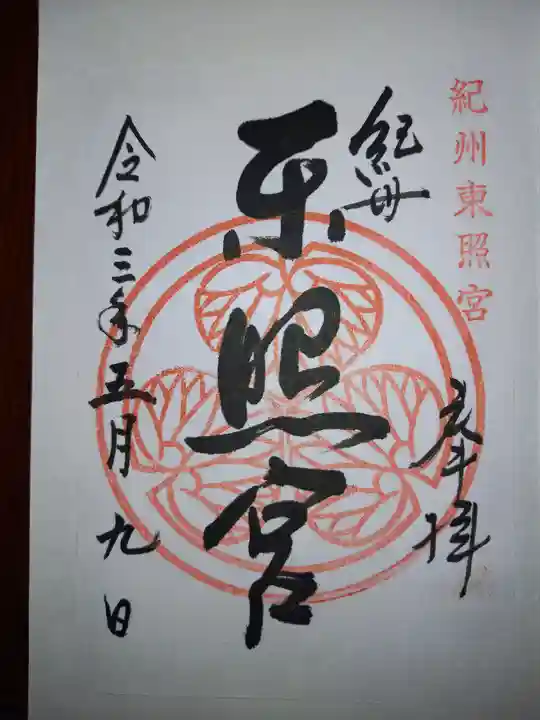 紀州東照宮
奉拝
紀州
東照宮
令和三年五月九日